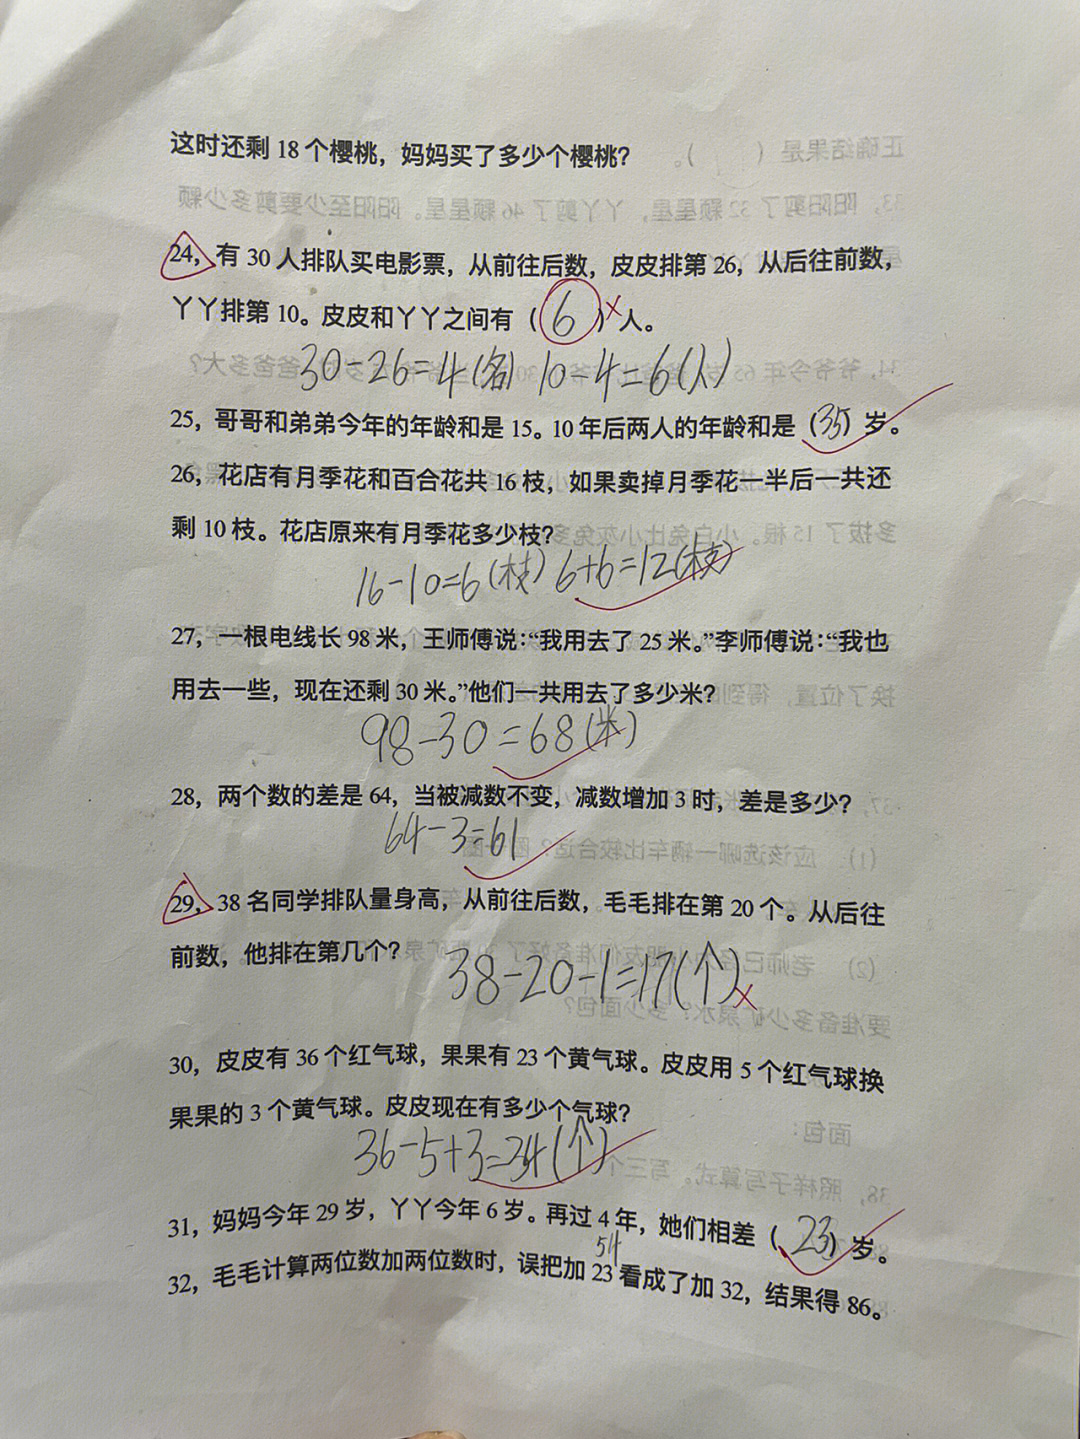 这时还剩 18 个樱桃，妈妈买了多少个樱桃？
24，有 30 人排队买电影票，从前往后数，皮皮排第 26，从后往前数，
丫丫排第 10。皮皮和丫丫之间有（ 6 ）人。
30-26=4(名) 10-4=6(人)
25，哥哥和弟弟今年的年龄和是 15。10 年后两人的年龄和是（35）岁。
26，花店有月季花和百合花共 16 枝，如果卖掉月季花一半后一共还
剩 10 枝。花店原来有月季花多少枝？
16-10=6(枝) 6+6=12(枝)
27，一根电线长 98 米，王师傅说：“我用去了 25 米。”李师傅说：“我也
用去一些，现在还剩 30 米。”他们一共用去了多少米？
98-30=68(米)
28，两个数的差是 64，当被减数不变，减数增加 3 时，差是多少？
64-3=61
29，38 名同学排队量身高，从前往后数，毛毛排在第 20 个。从后往
前数，他排在第几个？
38-20-1=17(个)
30，皮皮有 36 个红气球，果果有 23 个黄气球。皮皮用 5 个红气球换
果果的 3 个黄气球。皮皮现在有多少个气球？
36-5+3=34(个)
31，妈妈今年 29 岁，丫丫今年 6 岁。再过 4 年，她们相差（ 23 ）岁。
54
32，毛毛计算两位数加两位数时，误把加 23 看成了加 32，结果得 86。